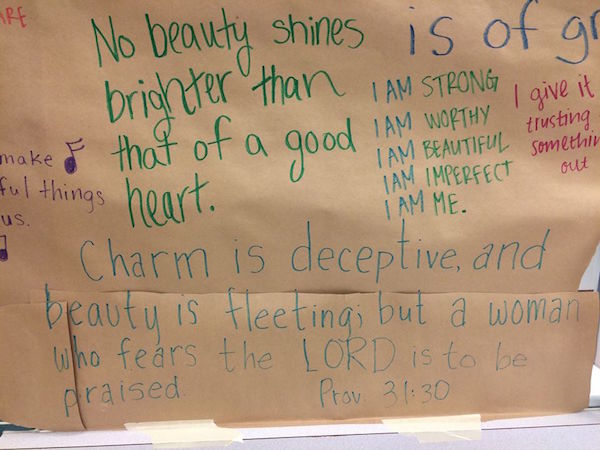 No beauty shines
brighter than
that of a good
heart.
is of
I AM STRONG
I AM WORTHY
I AM BEAUTIFUL
I AM IMPERFECT
I AM ME.
I give it
trusting
out
make
things
us.
Charm is deceptive, and
beauty is fleeting; but a woman
who fears the LORD is to be
praised.
Prov. 31:30